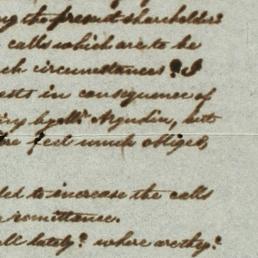 the present shareholders
calls which are to be
such circumstances? I
in consequence of
by Mr but
feel much obliged,
to increase the calls
remittance.
lately? where are they?